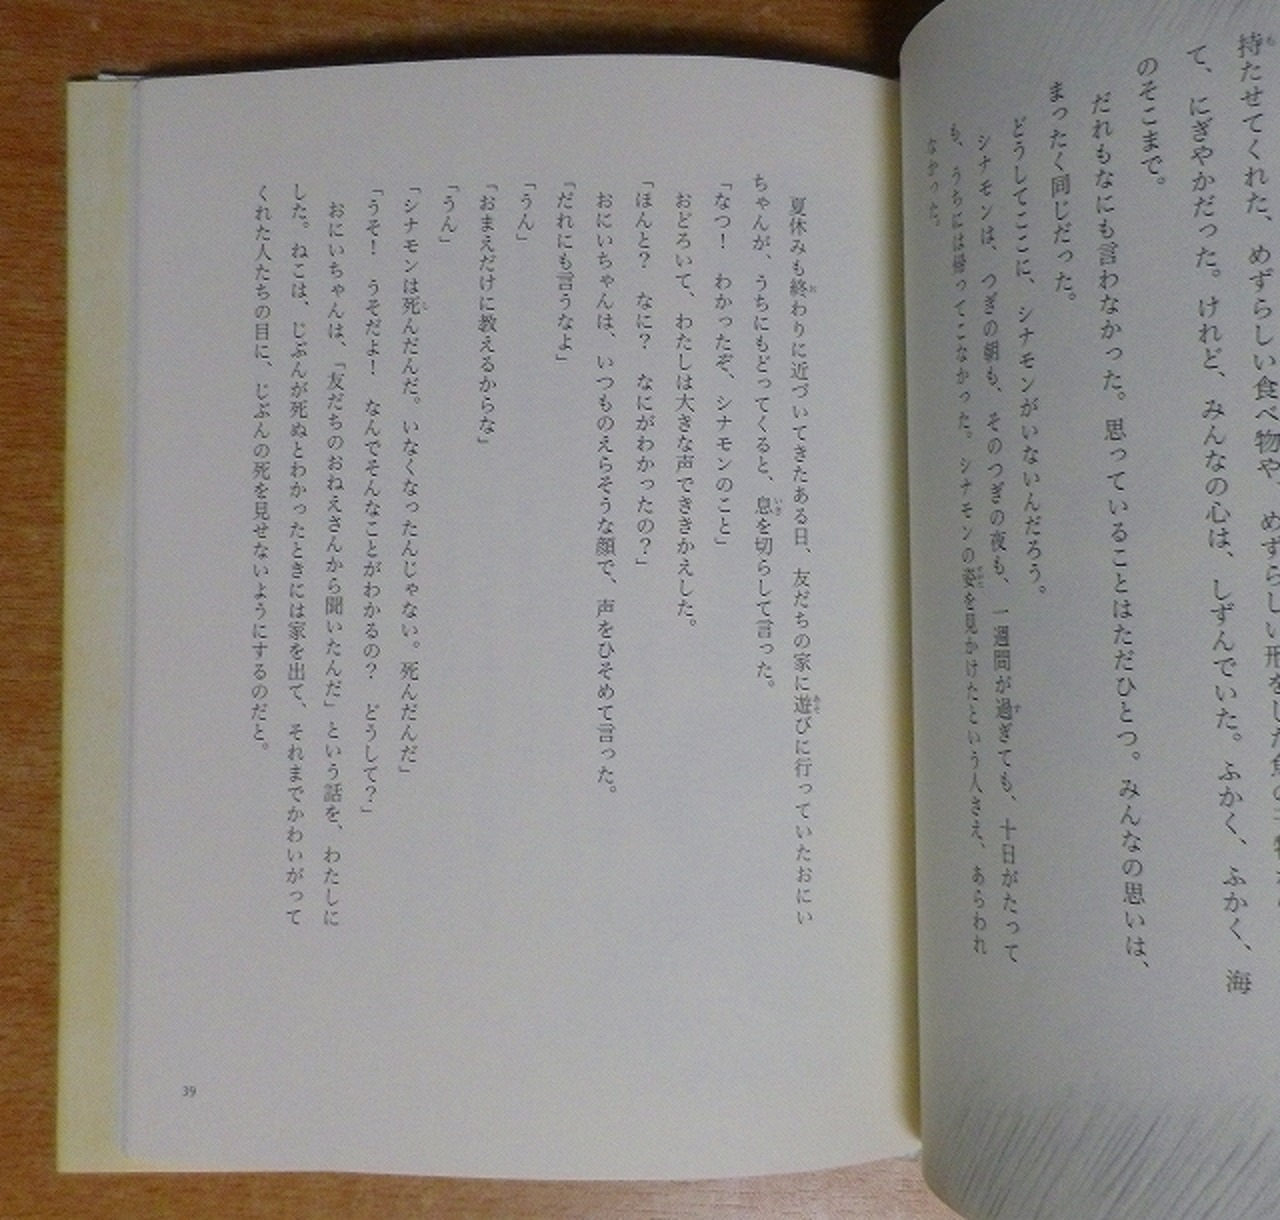 持たせてくれた、めずらしい食べ物や、めずらしい形をした魚の
て、にぎやかだった。けれど、みんなの心は、しずんでいた。ふかく、ふかく、海
のそこまで。
だれもなにも言わなかった。思っていることはただひとつ。みんなの思いは、
まったく同じだった。
どうしてここに、シナモンがいないんだろう。
シナモンは、つぎの朝も、そのつぎの夜も、一週間が過ぎても、十日がたって
も、うちには帰ってこなかった。シナモンの姿を見かけたという人さえ、あらわれ
なかった。
夏休みも終わりに近づいてきたある日、友だちの家に遊びに行っていたおにい
ちゃんが、うちにもどってくると、息を切らして言った。
「なつ！　わかったぞ、シナモンのこと」
おどろいて、わたしは大きな声でききかえした。
「ほんと？　なに？　なにがわかったの？」
おにいちゃんは、いつものえらそうな顔で、声をひそめて言った。
「だれにも言うなよ」
「うん」
「おまえだけに教えるからな」
「うん」
「シナモンは死んだんだ。いなくなったんじゃない。死んだんだ」
「うそ！　うそだよ！　なんでそんなことがわかるの？　どうして？」
おにいちゃんは、「友だちのおねえさんから聞いたんだ」という話を、わたしに
した。ねこは、じぶんが死ぬとわかったときには家を出て、それまでかわいがって
くれた人たちの目に、じぶんの死を見せないようにするのだと。
39